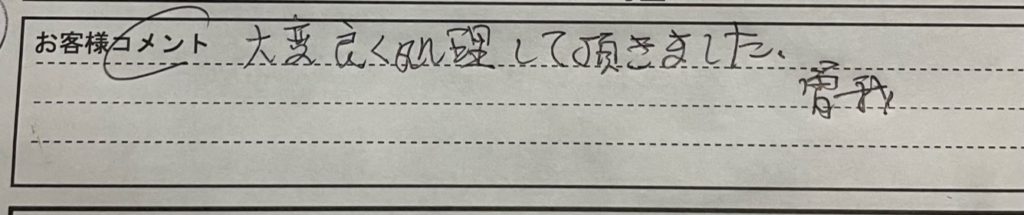 お客様コメント 大変良く処理して頂きました、
曽我